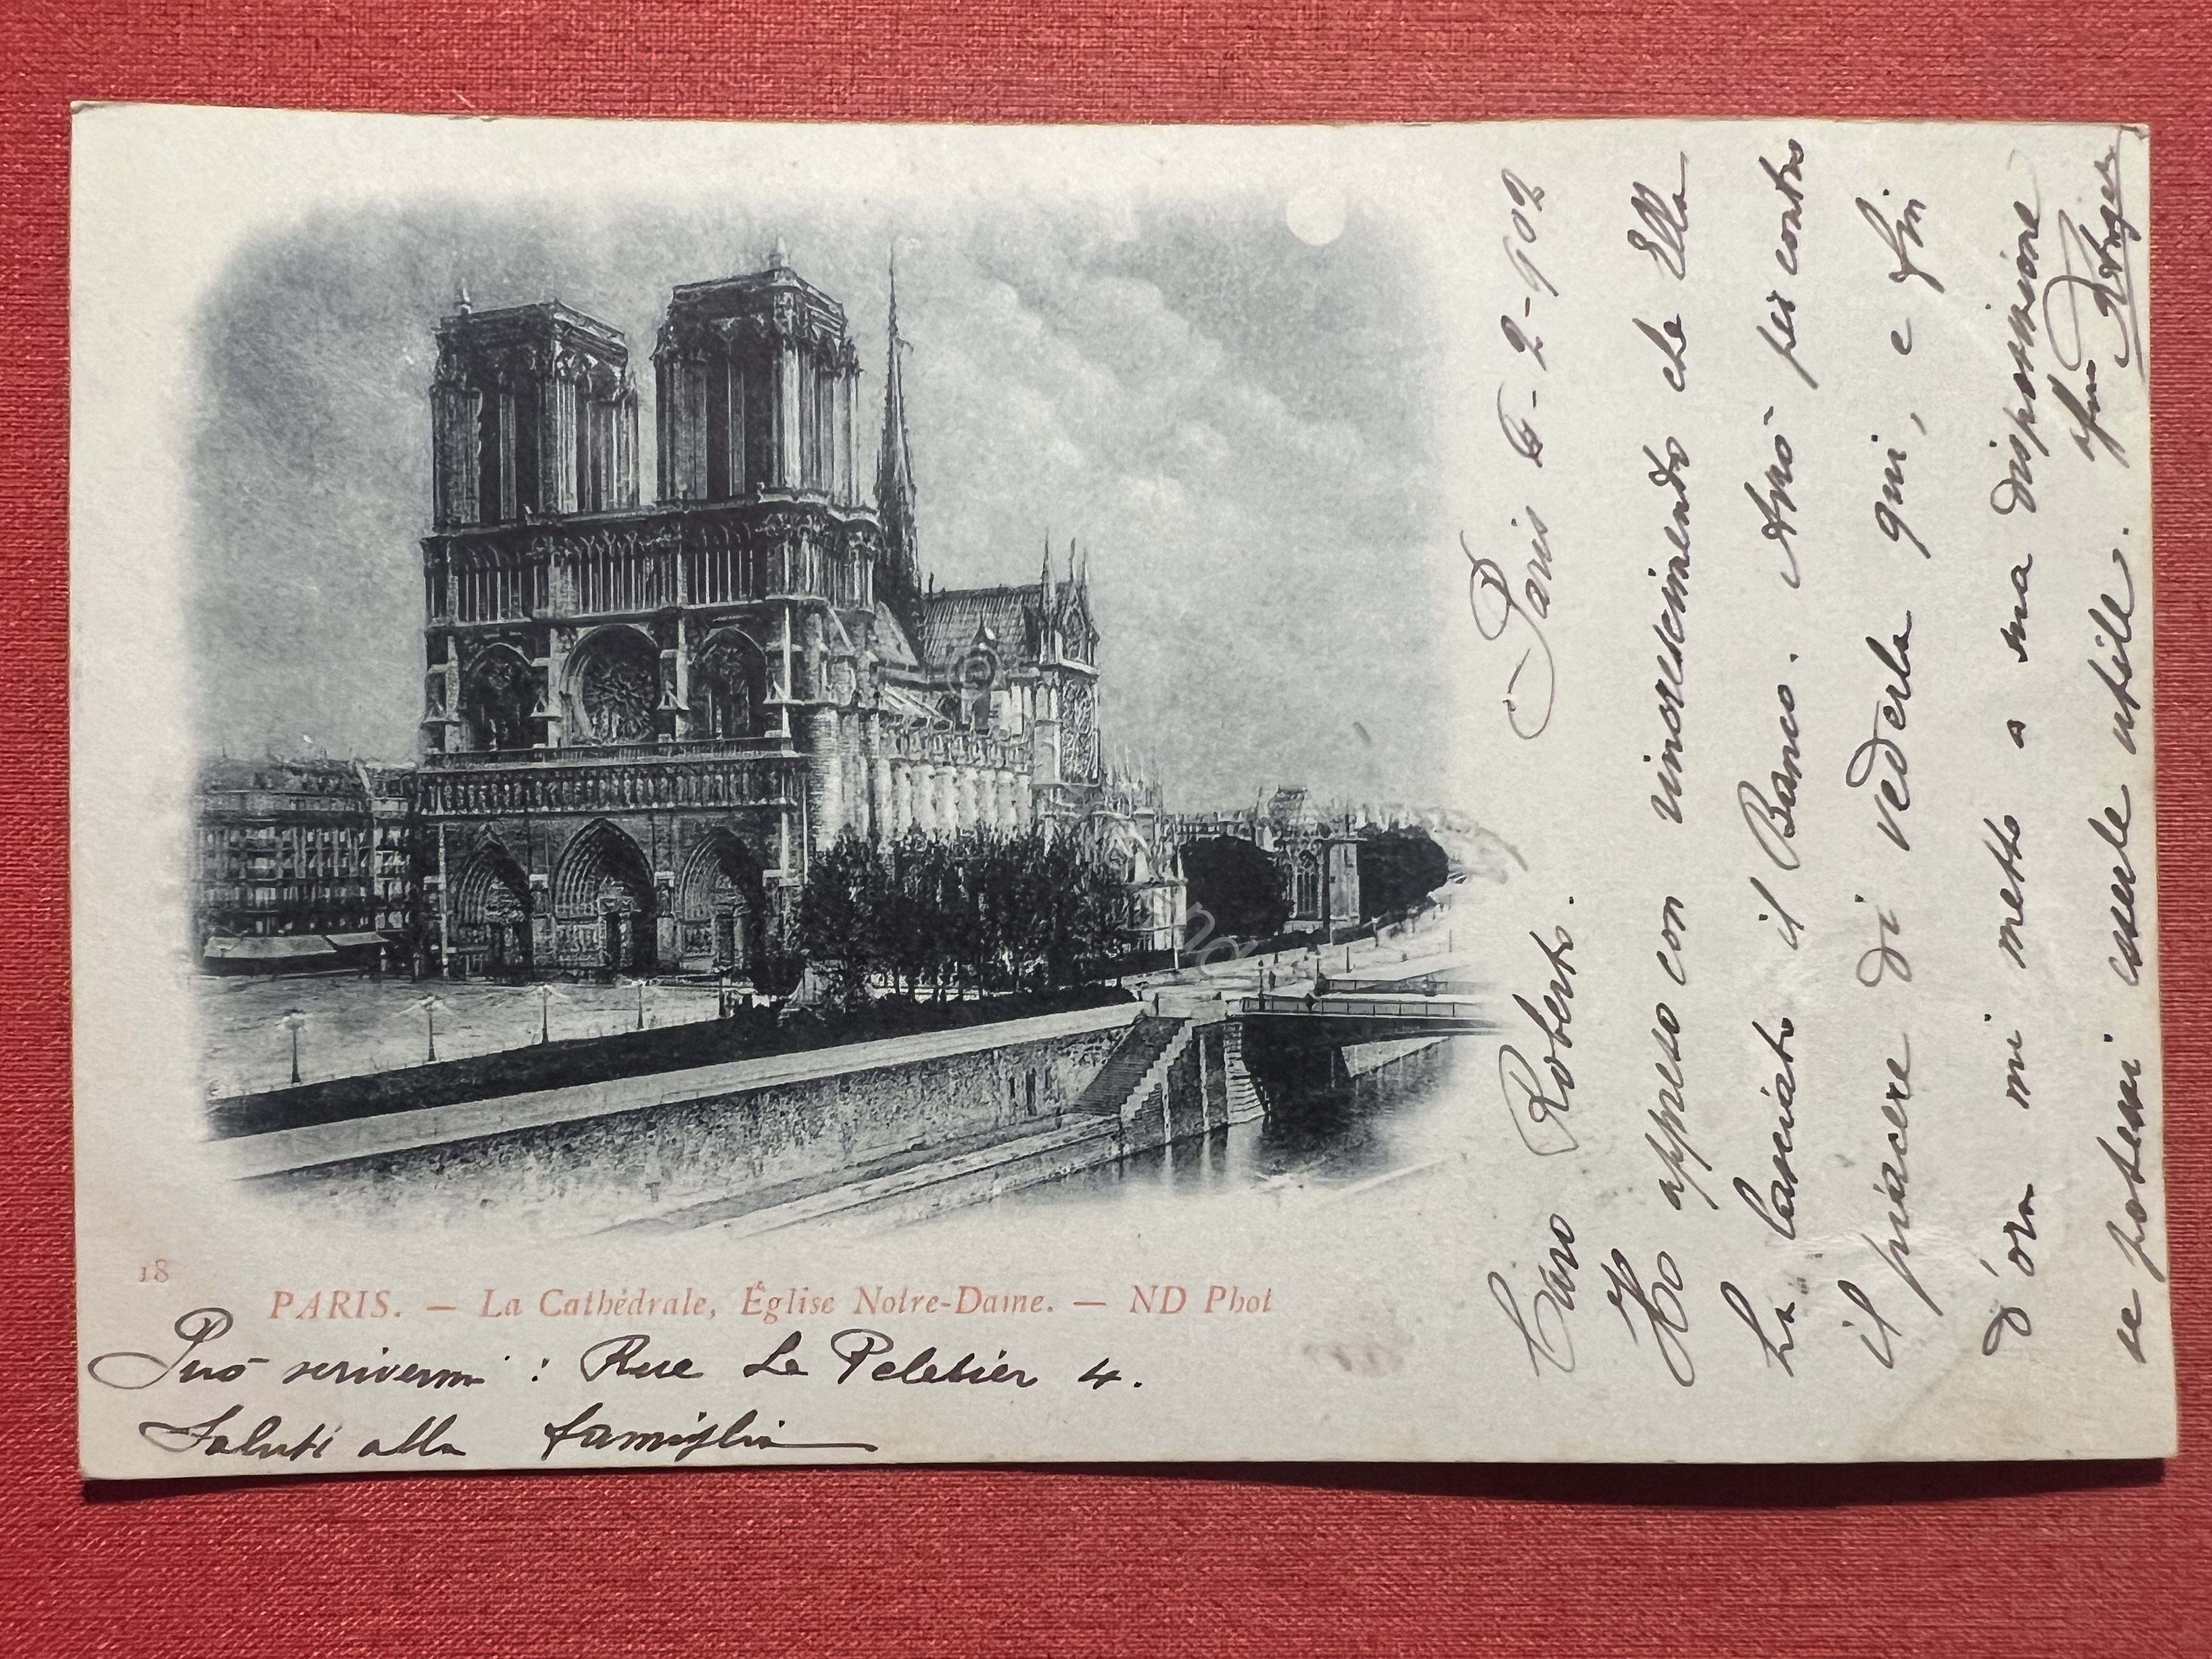 Paris 6-2-902
Caro Roberto.
Ho appreso con rincrescimento che Ella
ha lasciato il Banco. Avrò per contro
il piacere di vederla qui, e fin
d'ora mi metto a sua disposizione
se potessi esserle utile.
18
PARIS. — La Cathédrale, Église Notre-Dame. — ND Phot
Può scrivermi: Rue Le Peletier 4.
Saluti alla famiglia